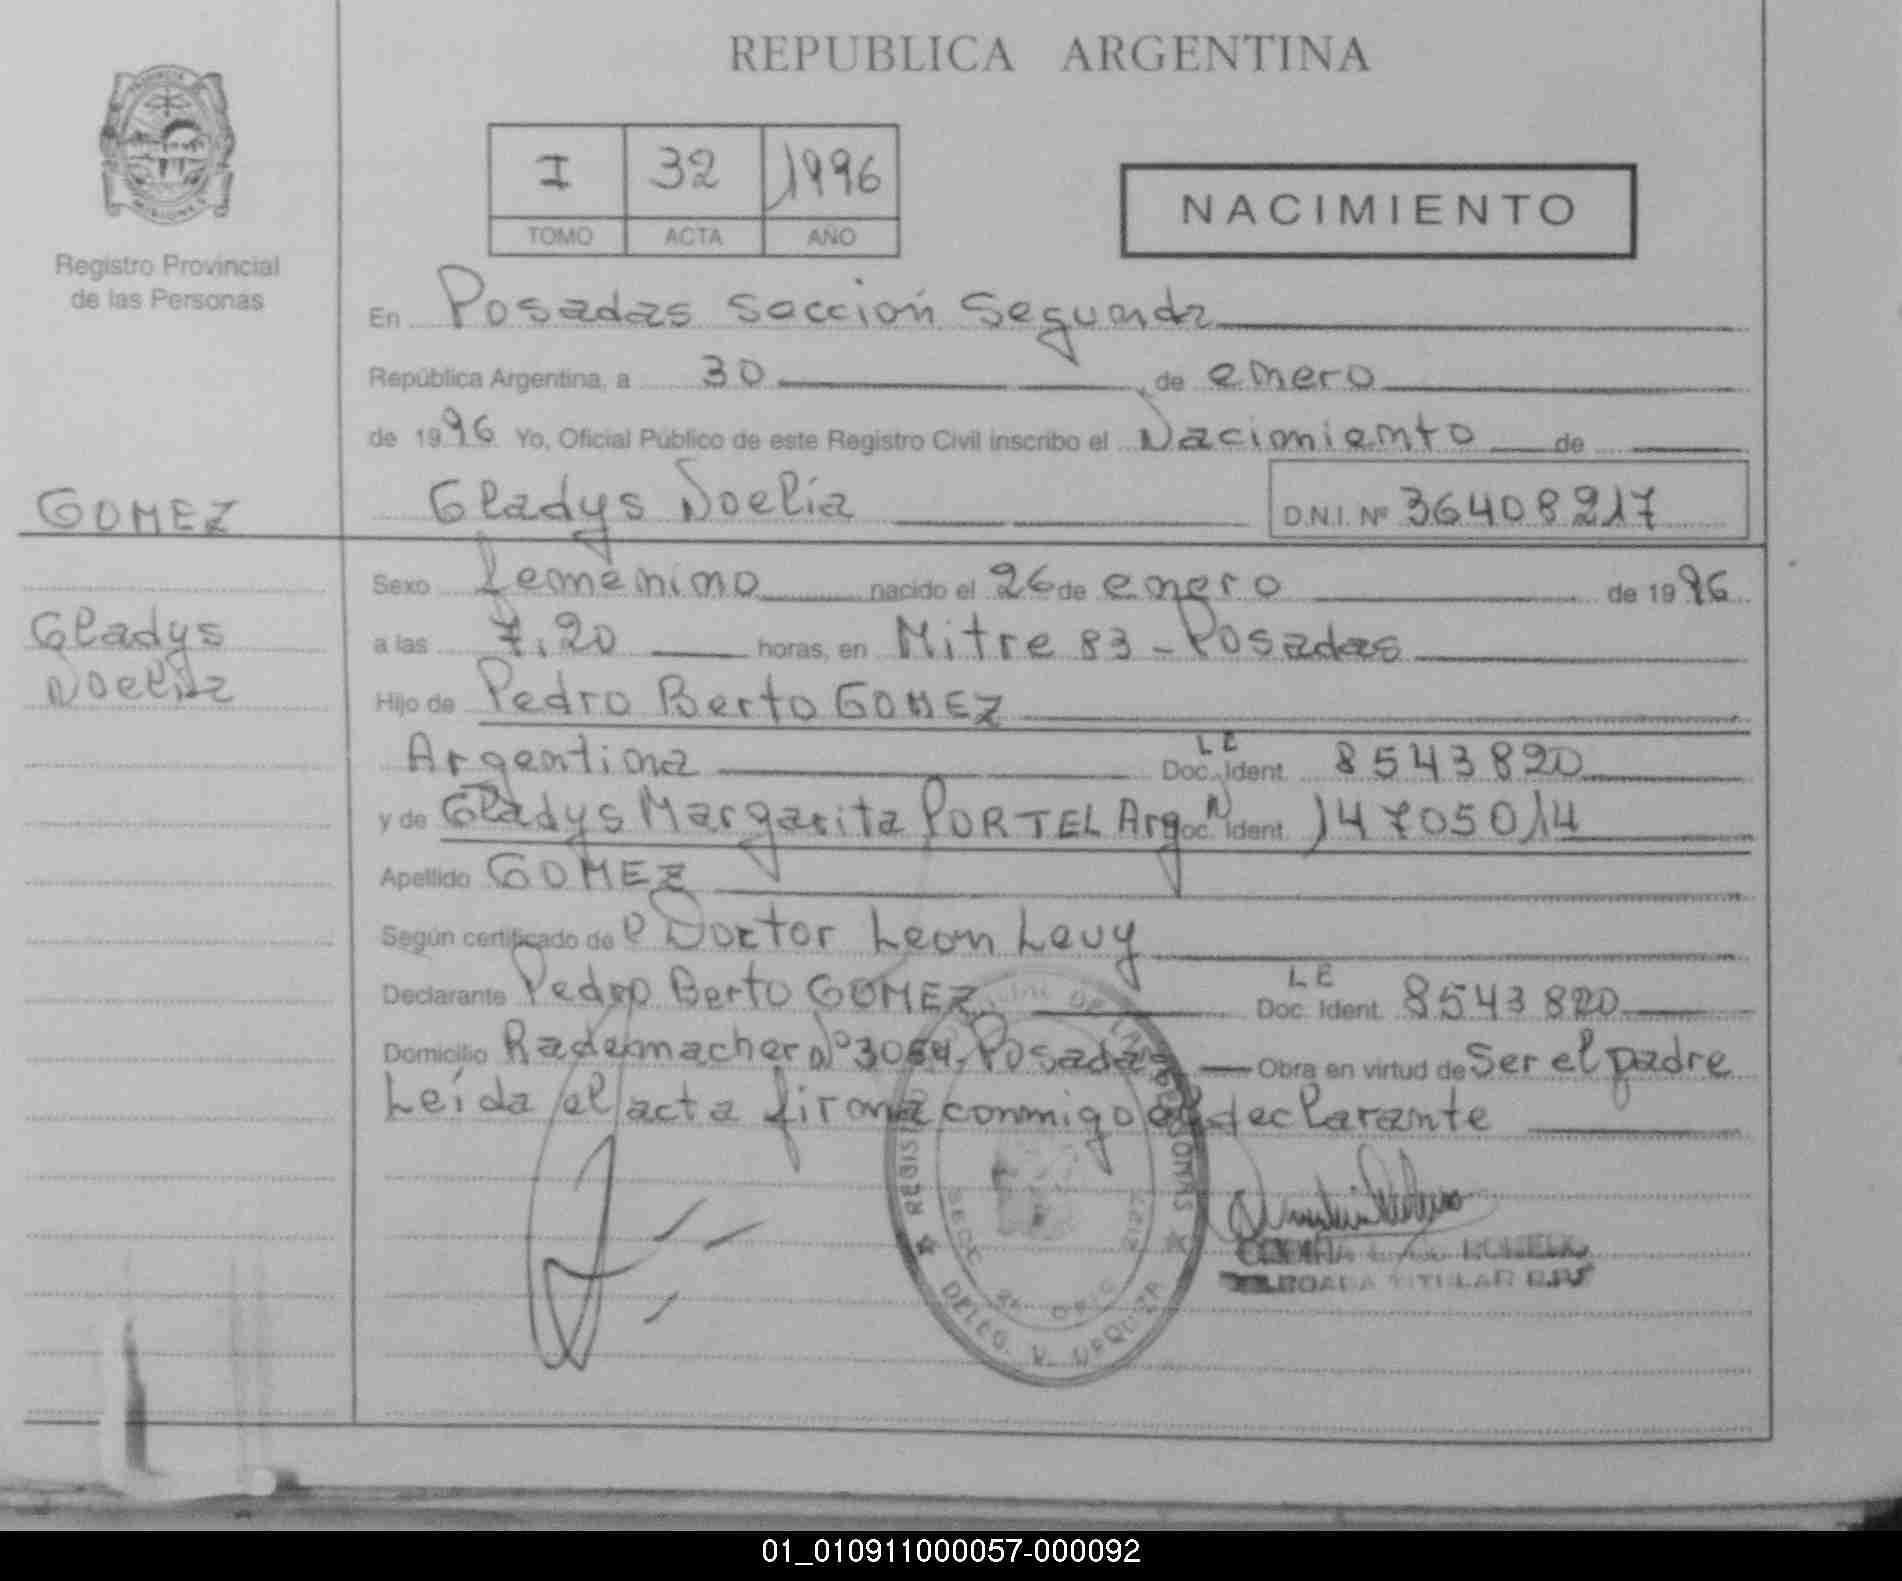 REPUBLICA ARGENTINA
MISIONES
Registro Provincial
de las Personas
I 32 1996
TOMO ACTA AÑO
NACIMIENTO
En Posadas Sección Segunda
República Argentina, a 30 de enero
de 1996 Yo, Oficial Público de este Registro Civil inscribo el Nacimiento de
GOMEZ Gladys Noelia D.N.I. Nº 36408217
Sexo femenino nacido el 26 de enero de 1996
Gladys
a las 7.20 horas, en Mitre 83 - Posadas
Noelia
Hijo de Pedro Berto GOMEZ
Argentina Doc. Ident. LE 8543820
y de Gladys Margarita PORTEL Arg Doc. Ident. 14705014
Apellido GOMEZ
Según certificado de Doctor Leon Levy
Declarante Pedro Berto GOMEZ Doc. Ident. LE 8543820
Domicilio Rademacher Nº 3054. Posadas Obra en virtud de Ser el padre
Leída el acta firma conmigo el declarante
DELEG. V. URQUIZA
TITULAR
01_010911000057-000092